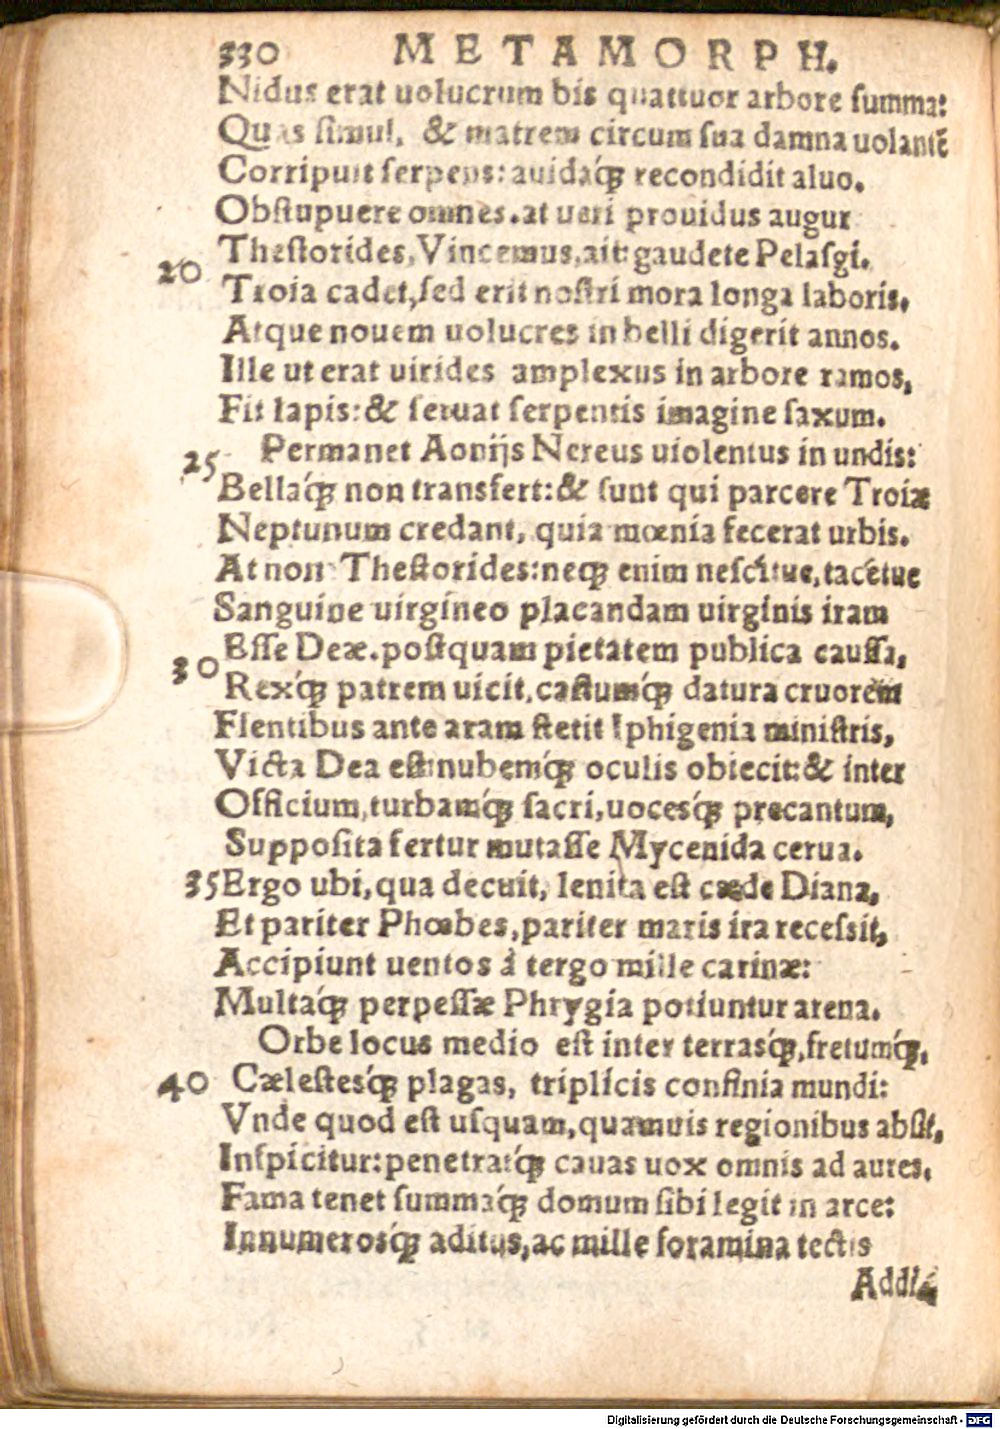 330 METAMORPH.
Nidus erat uolucrum bis quattuor arbore summa:
Quas simul, & matrem circum sua damna uolantẽ
Corripuit serpens: auidaq́; recondidit aluo.
Obstupuere omnes. at ueri prouidus augur
Thestorides, Vincemus, ait: gaudete Pelasgi.
20 Troia cadet, sed erit nostri mora longa laboris.
Atque nouem uolucres in belli digerit annos.
Ille ut erat uirides amplexus in arbore ramos,
Fit lapis: & seruat serpentis imagine saxum.
25 Permanet Aonijs Nereus uiolentus in undis:
Bellaq́; non transfert: & sunt qui parcere Troiæ
Neptunum credant, quia mœnia fecerat urbis.
At non Thestorides: neq; enim nescitue, tacetue
Sanguine uirgineo placandam uirginis iram
30 Esse Deæ. postquam pietatem publica caussa,
Rexq́; patrem uicit, castumq́; datura cruorem
Flentibus ante aram stetit Iphigenia ministris,
Victa Dea est: nubemq́; oculis obiecit: & inter
Officium, turbamq́; sacri, uocesq́; precantum,
Supposita fertur mutasse Mycenida cerua.
35 Ergo ubi, qua decuit, lenita est cæde Diana,
Et pariter Phœbes, pariter maris ira recessit,
Accipiunt uentos á tergo mille carinæ:
Multaq́; perpessæ Phrygia potiuntur arena.
Orbe locus medio est inter terrasq́;, fretumq́;,
40 Cælestesq́; plagas, triplicis confinia mundi:
Vnde quod est usquam, quamuis regionibus absit,
Inspicitur: penetratq́; cauas uox omnis ad aures.
Fama tenet summaq́; domum sibi legit in arce:
Innumerosq́; aditus, ac mille foramina tectis
Digitalisierung gefördert durch die Deutsche Forschungsgemeinschaft - DFG